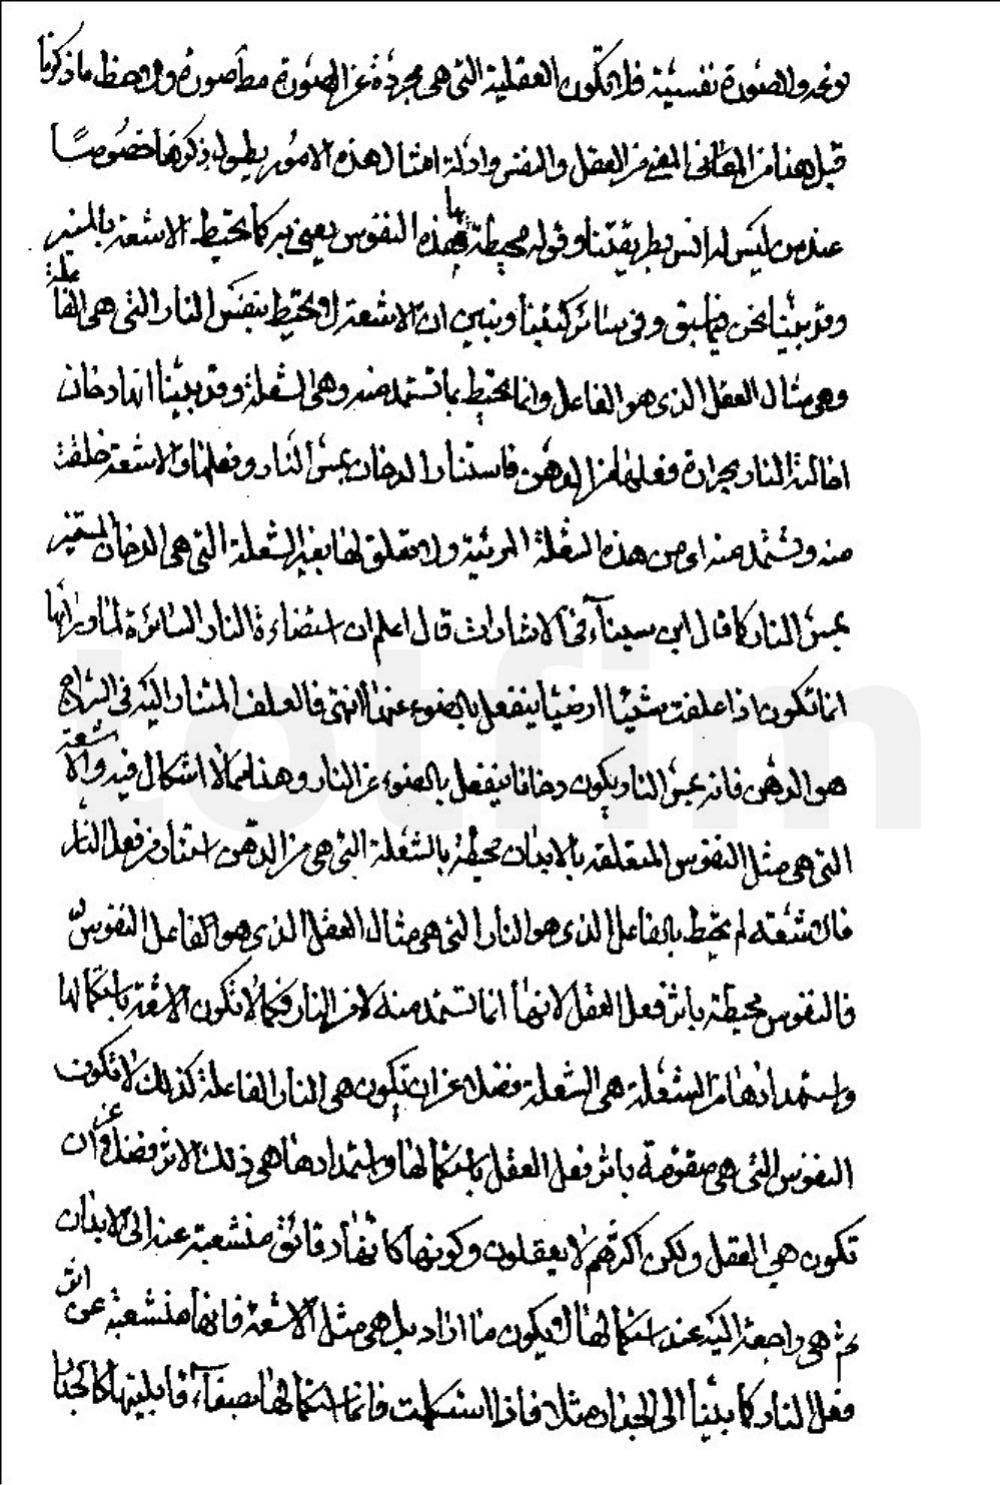 ونحوه والصورة نفسية فلا تكون العقلية التي هي مجردة عن الصورة مطا صورة ولاحظ ما ذكرنا
قبل هنا من المعاني المعني من العقل والنفس وادلة امثال هذه الامور يطول ذكرها خصوصًا
عند من ليس له انس بطريقتنا وقوله محيطة بها فهذه النفوس يعني به كما يحيط الاشعة بالمنير
وقد بينا نحن فيما سبق وفي سائر كتبنا ونبين ان الاشعة لا تحيط بنفس النار التي هي الفاعلة
وهي مثال العقل الذي هو الفاعل وانما تحيط بما تستمد منه وهي الشعلة وقد بينا انها دخان
احالته النار بحرارة فعلها من الدهن فاستنار الدخان بمس النار وفعلها والاشعة خلقت
منه وتستمد منه اي من هذه الشعلة المرئية ولا تعلق لها بغير الشعلة التي هي الدخان المستنير
بمس النار كما قال ابن سينآء في الاشارات قال اعلم ان استضاءة النار الساترة لما ورائها
انما تكون اذا علقت شيئا ارضيا ينفعل بالضوء عنها انتهى فالعلف المشار اليه في السراج
هو الدهن فانه بمس النار يكون دخانا ينفعل بالضوء عن النار وهنا مما لا اشكال فيه والاشعة
التي هي مثل النفوس المتعلقة بالابدان محيطة بالشعلة التي هي من الدهن استنار من فعل النار
فالاشعة لم تحط بالفاعل الذي هو النار التي هي مثال العقل الذي هو الفاعل النفوس
فالنفوس محيطة باثر فعل العقل لانها انما تستمد منه لا من النار فكما لا تكون الاشعة باستكمالها
واستمدادها من الشعلة هي الشعلة فضلا عن ان تكون هي النار الفاعلة كذلك لا تكون
النفوس التي هي متقومة باثر فعل العقل باستكمالها واستمدادها هي ذلك الاثر فضلا عن ان
تكون هي العقل ولكن اكثرهم لا يعقلون وكونها كانها دقائق منشعبة عنه الى الابدان
ثم هي راجعة اليه عند استكمالها لا يكون ما اراد بل هي مثل الاشعة فانها منشعبة عن اثر
فعل النار كما بينا الى الجدار مثلا فاذا استكملت فانما استكمالها بصفآء قابليتها كالجدار